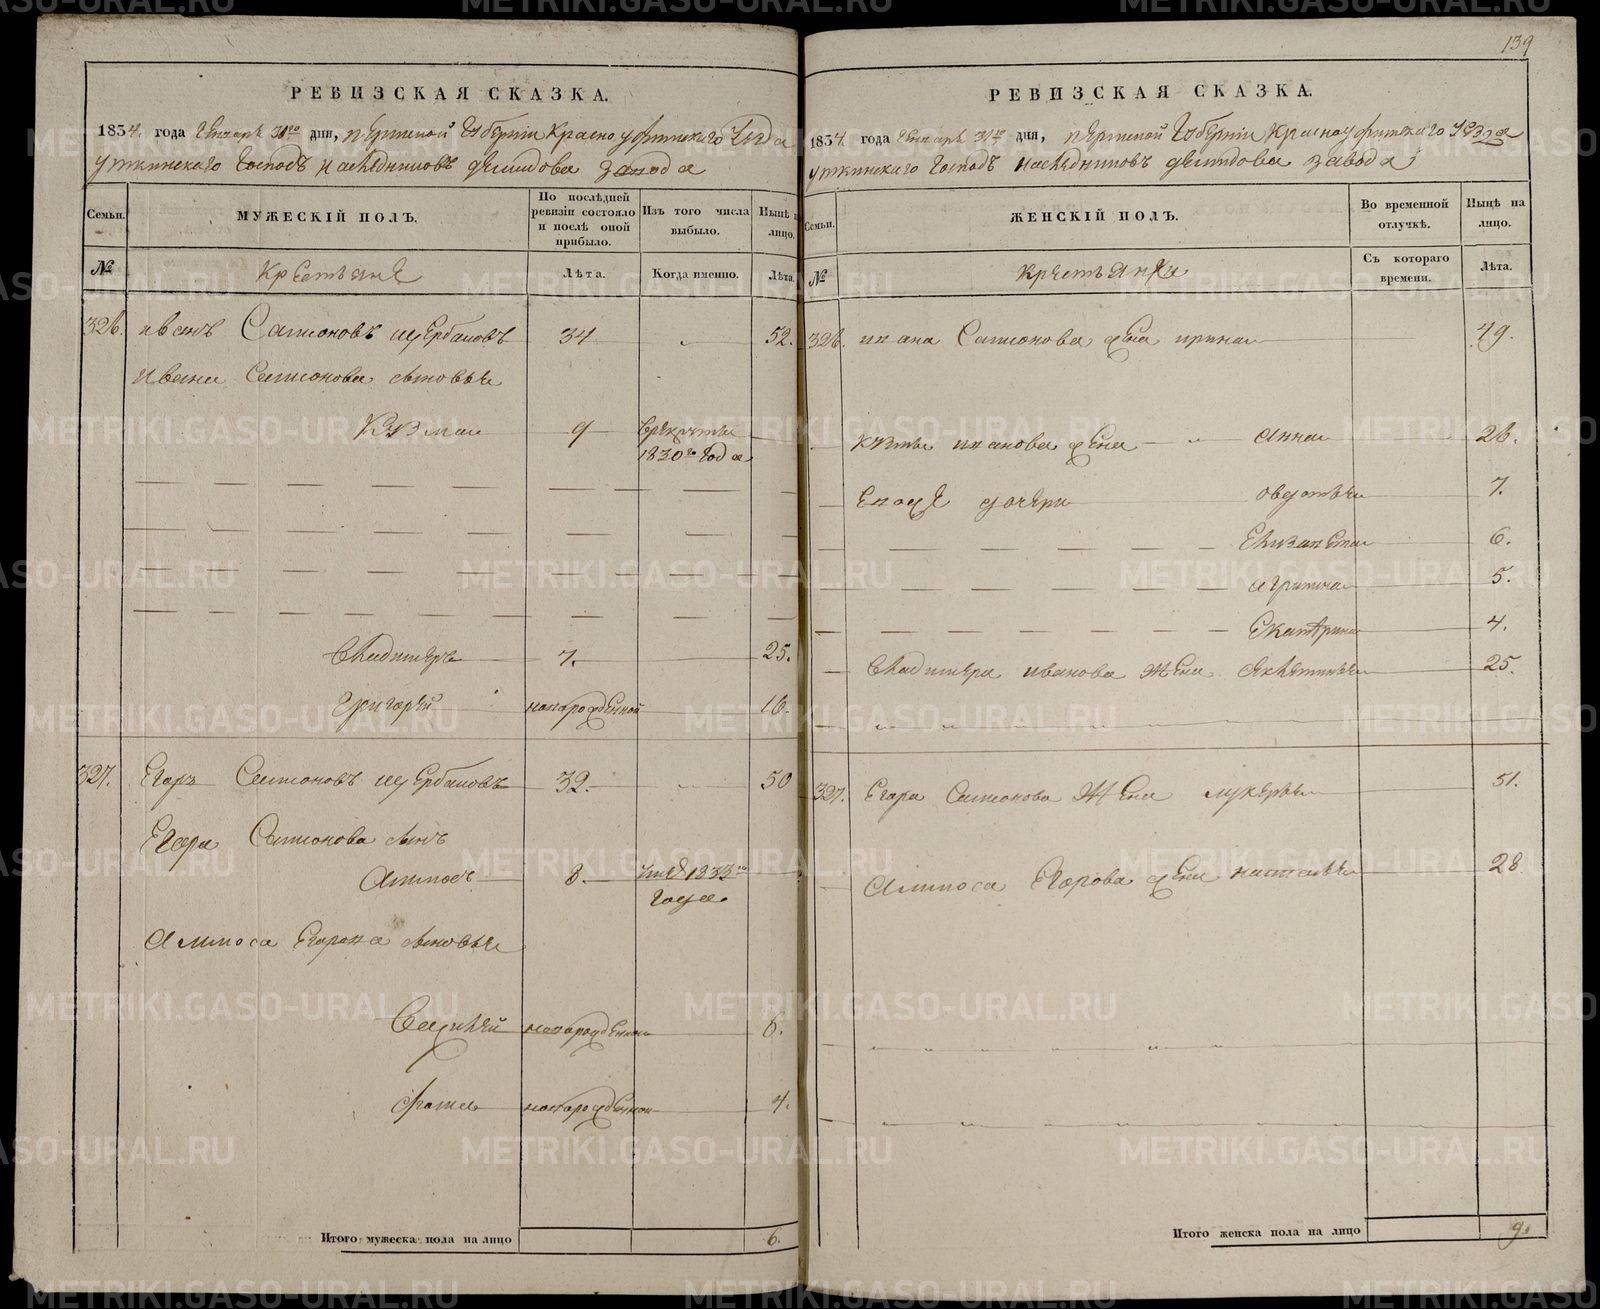 139
РЕВИЗСКАЯ СКАЗКА.
1834. года Генваря 31го дня, Пермской Губернии Красноуфимского Уезда
Уткинского Господъ наследниковъ Демидова завода
Семьи.
МУЖЕСКІЙ ПОЛЪ.
По послѣдней ревизіи состояло и послѣ оной прибыло.
Изъ того числа выбыло.
Нынѣ на лицо.
№
Крестьяне
Лѣта.
Когда именно.
Лѣта.
326. Иванъ Самсоновъ Щербаковъ 34 52.
Ивана Самсонова сыновья
Кузма 9 в рекруты
1830го года
Владимеръ 7. 25.
Григорей новорожденной 16.
327. Егоръ Самсоновъ Щербаковъ 32. 50
Егора Самсонова сынъ
Аммосъ 8. 1833го
года.
Аммоса Егорова сыновья
Василей новорожденной 6.
Фома новорожденной 4.
Итого мужеска пола на лицо 6.
РЕВИЗСКАЯ СКАЗКА.
1834. года Генваря 31го дня, Пермской Губернии Красноуфимского Уезда
Уткинского Господъ наследниковъ Демидова завода
Семьи.
ЖЕНСКІЙ ПОЛЪ.
Во временной отлучкѣ.
Нынѣ на лицо.
№
Крестьянки
Съ котораго времени.
Лѣта.
326. Ивана Самсонова жена Ирина 49.
Кузмы Иванова жена Анна 26.
Евоже дочери Овдотья 7.
Елизавета 6.
Агрипина 5.
Екатерина 4.
Владимера Иванова жена 25.
327. Егора Самсонова жена Лукерья 51.
Аммоса Егорова жена Наталья 28
Итого женска пола на лицо 9.
METRIKI.GASO-URAL.RU